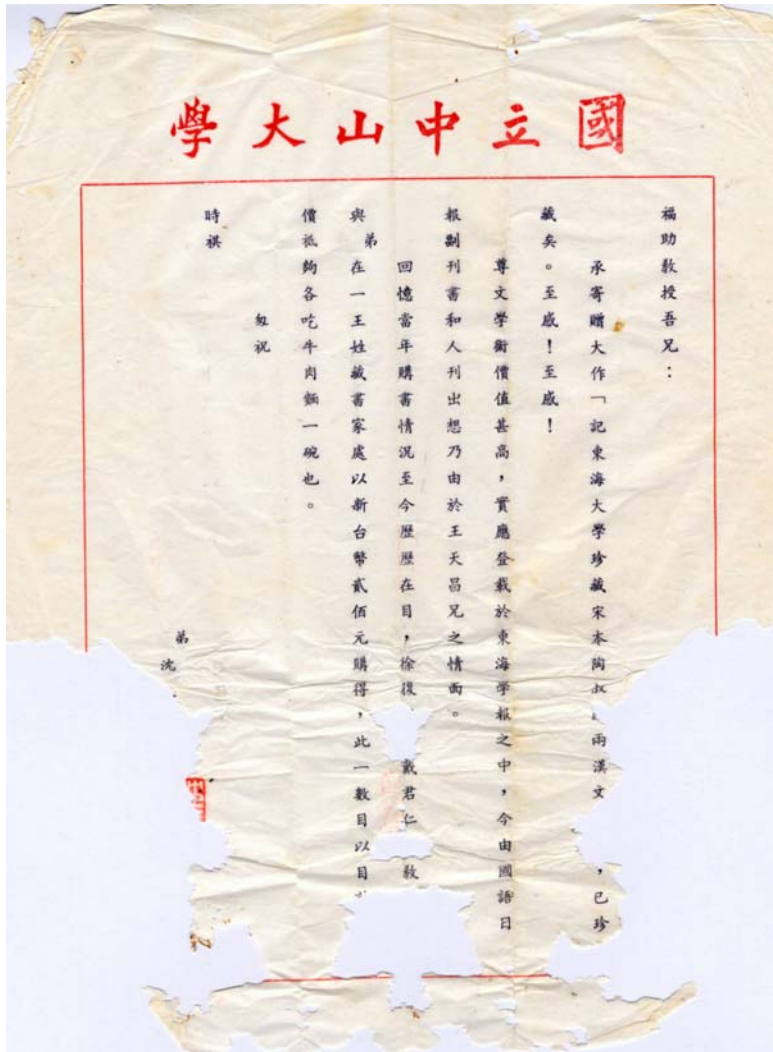 國立中山大學
福助教授吾兄：
承寄贈大作「記東海大學珍藏宋本陶叔 兩漢文 ，已珍
藏矣。至感！至感！
尊文學術價值甚高，實應登載於東海學報之中，今由國語日
報副刊書和人刊出想乃由於王天昌兄之情面。
回憶當年購書情況至今歷歷在目，徐復 戴君仁 教
與弟在一王姓藏書家處以新台幣貳佰元購得，此一數目以目
價祗夠各吃牛肉麵一碗也。
匆祝
時祺
弟
沈